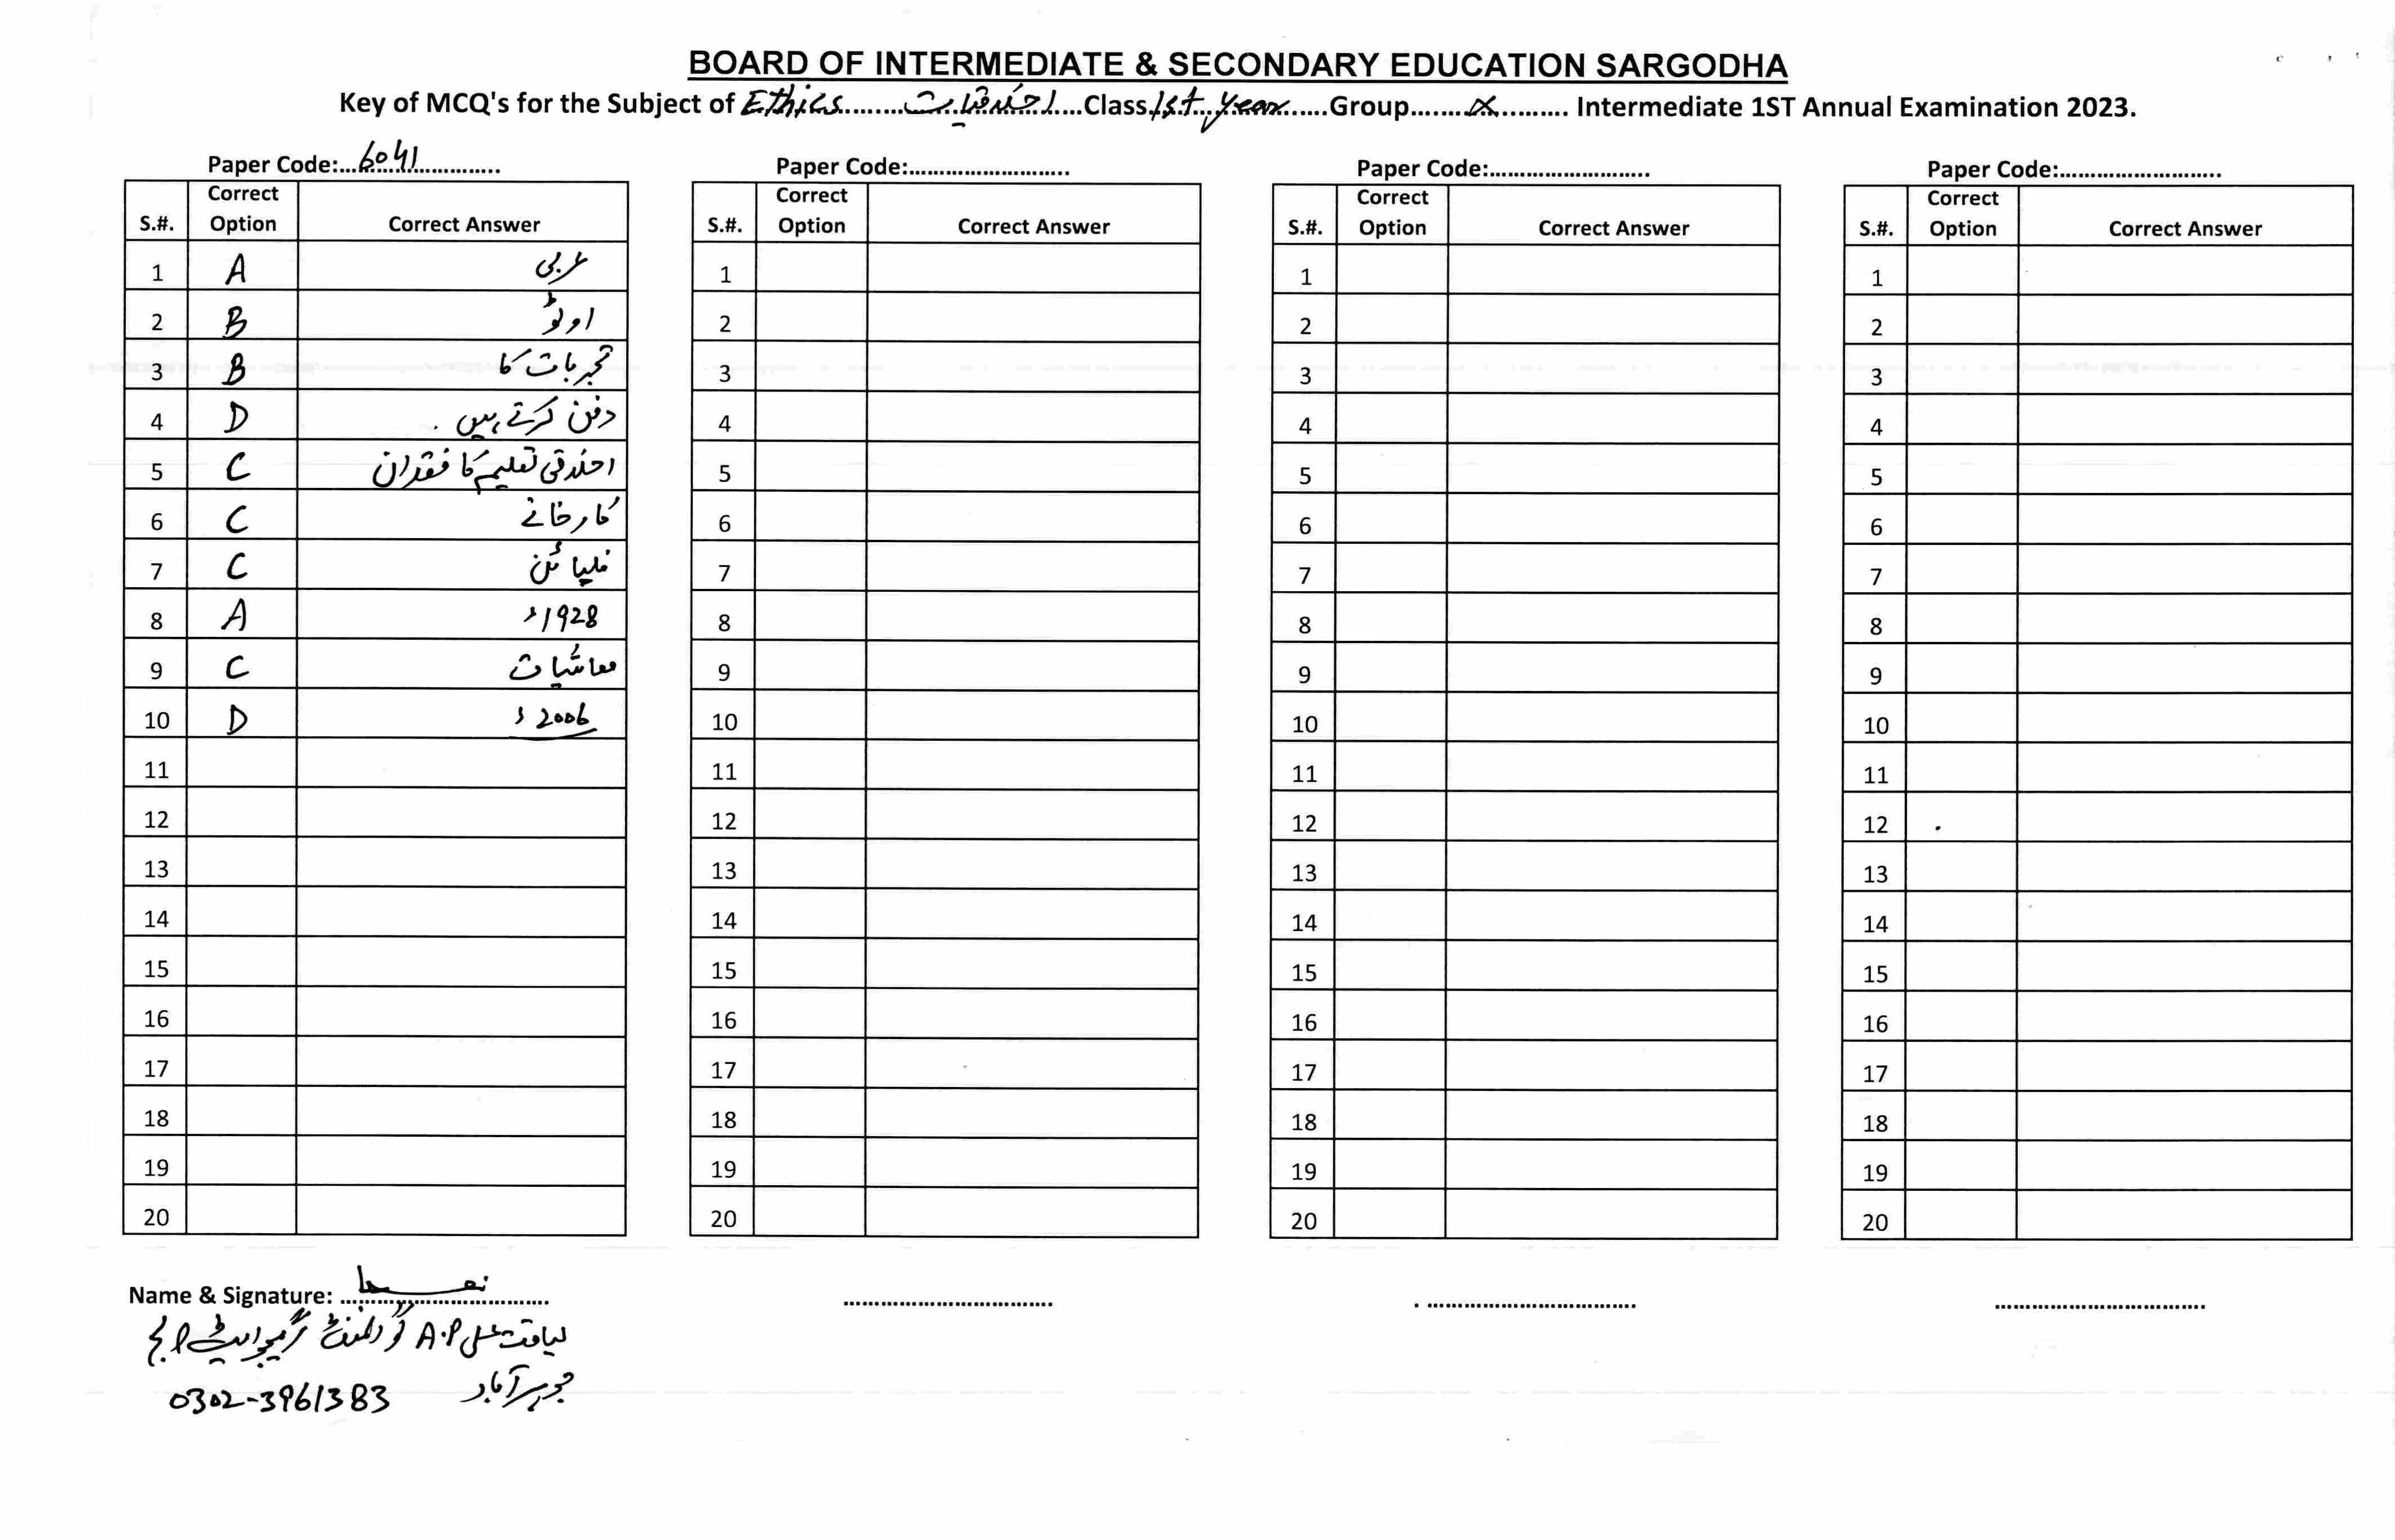 BOARD OF INTERMEDIATE & SECONDARY EDUCATION SARGODHA
Key of MCQ's for the Subject of Ethics........اخلاقیات....Class.1st year......Group............ Intermediate 1ST Annual Examination 2023.
Paper Code:...6041............
S.#. Correct Option Correct Answer
1 A عربی
2 B اوٹو
3 B تجربات کا
4 D دفن کرتے ہیں .
5 C اخلاقی تعلیم کا فقدان
6 C کارخانے
7 C فلپائن
8 A 1928ء
9 C معاشیات
10 D 2006ء
11
12
13
14
15
16
17
18
19
20
Name & Signature: ................................
لیاقت علی A.P گورنمنٹ گریجوایٹ کالج
جوہرآباد
0302-3961383
Paper Code:...........................
S.#. Correct Option Correct Answer
1
2
3
4
5
6
7
8
9
10
11
12
13
14
15
16
17
18
19
20
Paper Code:...........................
S.#. Correct Option Correct Answer
1
2
3
4
5
6
7
8
9
10
11
12
13
14
15
16
17
18
19
20
Paper Code:...........................
S.#. Correct Option Correct Answer
1
2
3
4
5
6
7
8
9
10
11
12
13
14
15
16
17
18
19
20